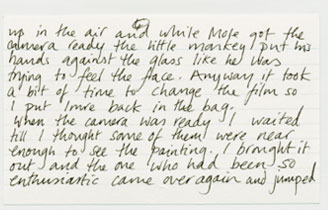 up in the air and while Mose got the
camera ready the little monkey put his
hands against the glass like he was
trying to feel the face. Anyway it took
a bit of time to change the film so
I put Imre back in the bag.
When the camera was ready I waited
till I thought some of them were near
enough to see the painting. I brought it
out and the one who had been so
enthusiastic came over again and jumped